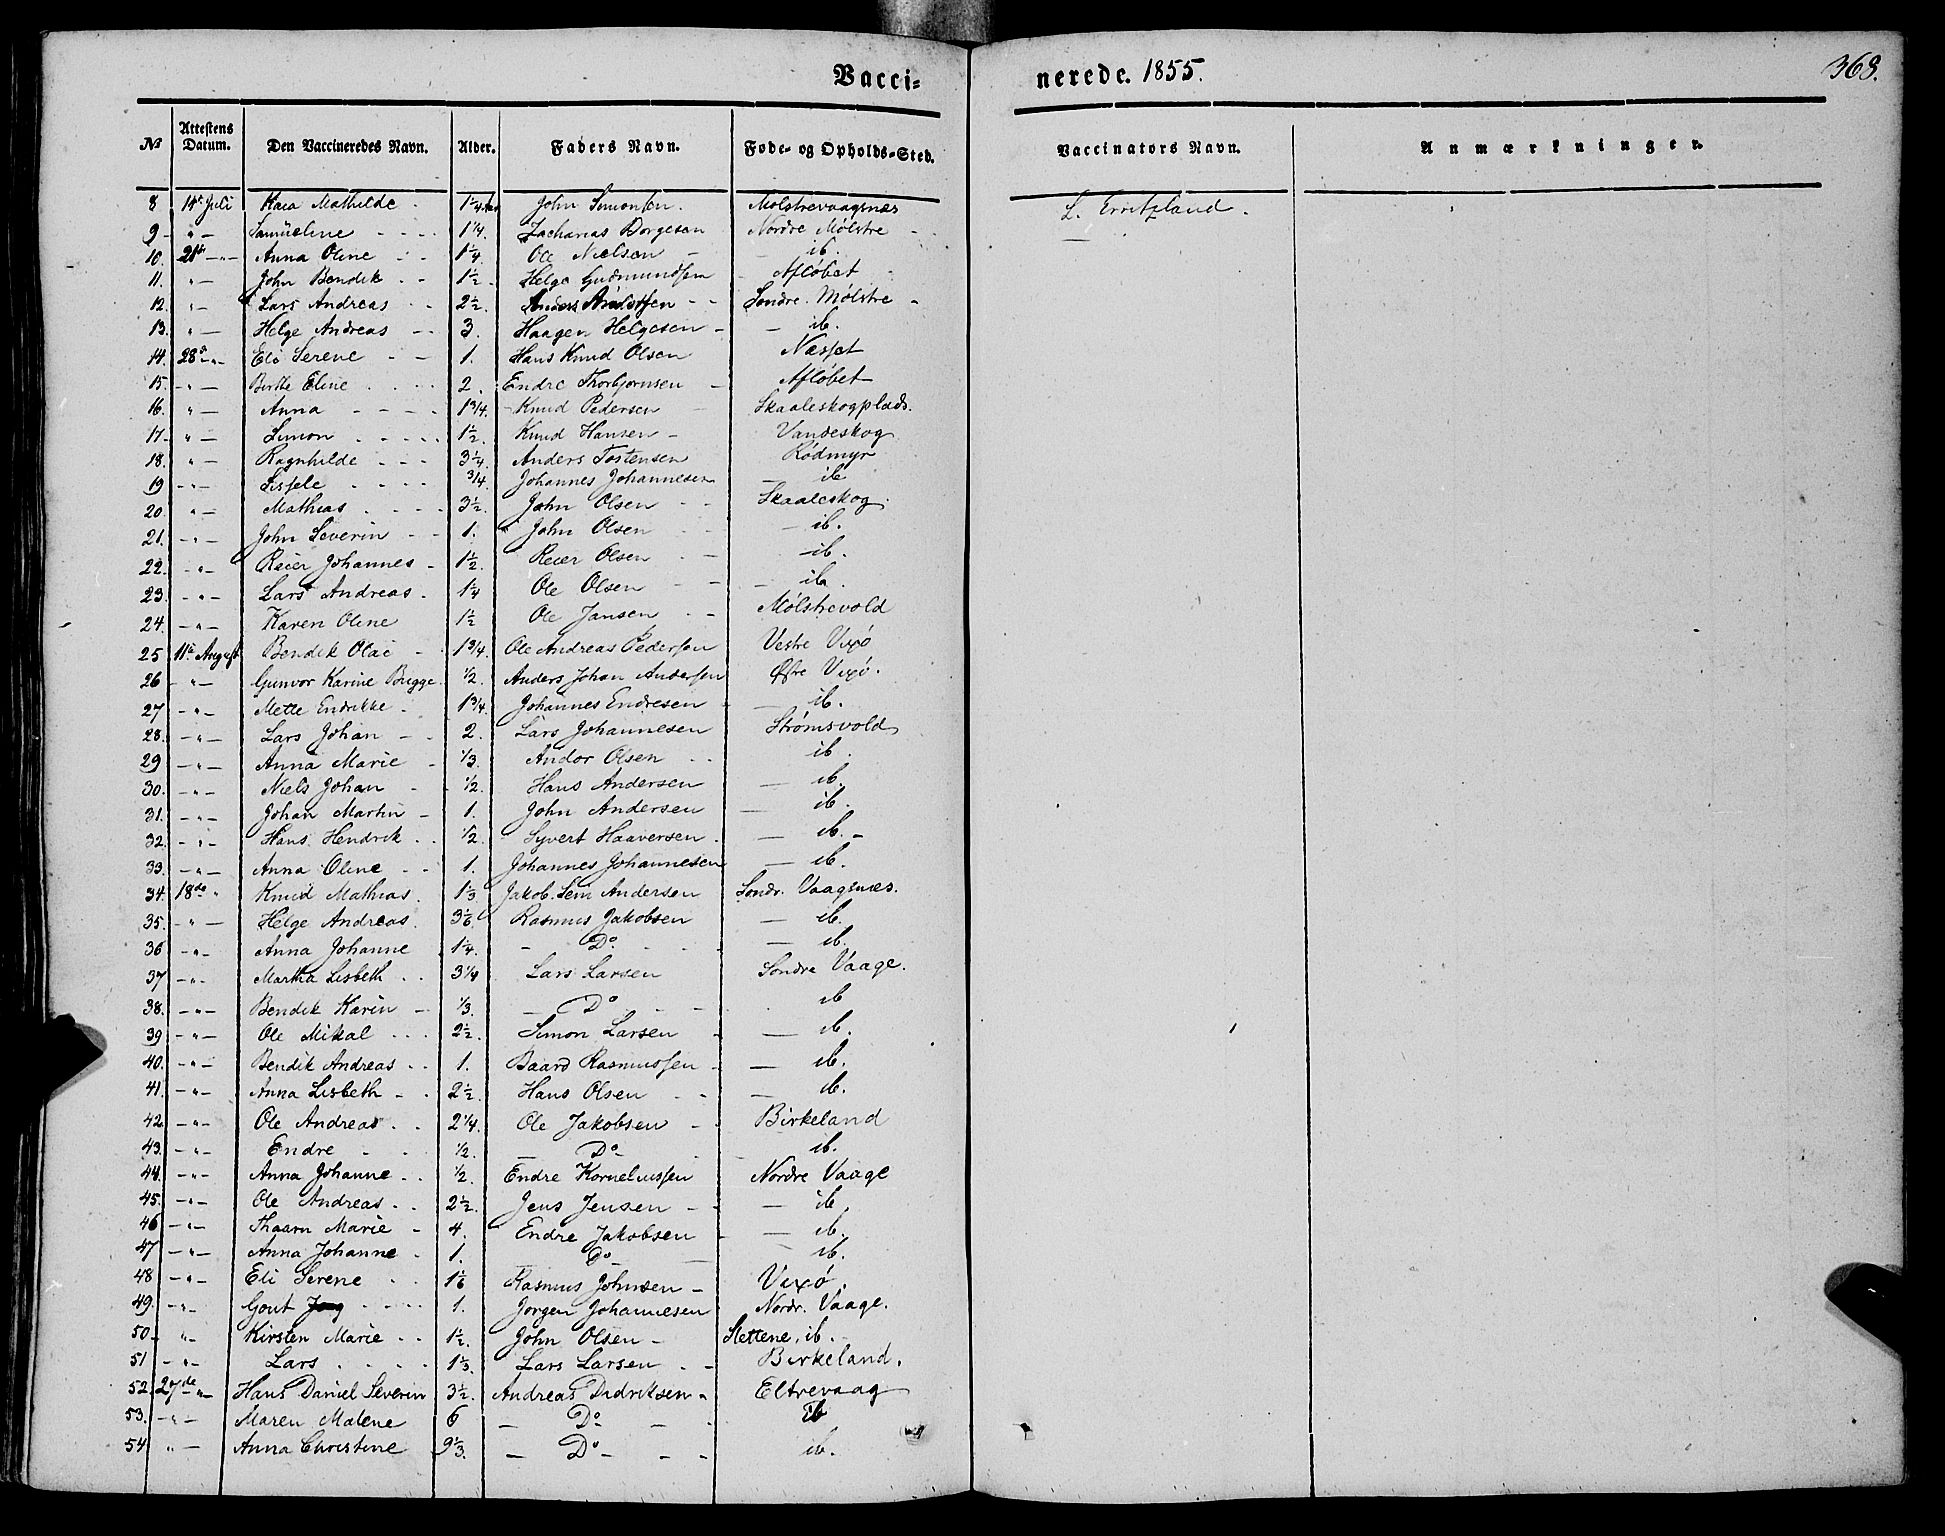 Vacci-
nerede. 1855.
368.
№ Attestens Datum. Den Vaccineredes Navn. Alder. Faders Navn. Føde- og Opholds-Sted. Vaccinators Navn. Anmærkninger.
8 14de Juli Kaia Mathilde - 1 1/4 Aar John Simonsen. Mølstrevaagsnæs L. Erritzland.
9 - " - Samueline - - - 1 1/4. Zacharias Borgesen Nordre Mølstre -
10. 21de - " - Anna Oline - - 1 1/4. Ole Nielsen - - ib.
11. " - John Bendik - - 1 1/2. Helge Gudmundsen - Afløbet -
12. " - Lars Andreas - - 2 1/2. Anders - - Søndre Mølstre -
13. " - Helge Andreas - - 3. Haagen Helgesen - - ib.
14. 28de - " - Eli Serene - - 1. Hans Knud Olsen Næsset
15. - " - Birthe Eline - - - 2. Endre Thorbjørnsen - Afløbet
16. " - Anna - - - - 1 3/4. Knud Pedersen - Skaaleskogplads.
17. - " - Simon - - - - 1 1/2. Knud Hansen - Vandeskog
18. - " - Ragnhilde - - - 3 1/4. Anders Tostensen Rødmyr
19 - " - Sissele - - - - 3/4. Johannes Johannesen - ib
20. " - Mathias - - - - 3 1/2. John Olsen - - Skaaleskog.
21. - " - John Severin - - 1. John Olsen - - - ib.
22. - " - Reier Johannes - 1 1/2. Reier Olsen - - - ib.
23. - " - Lars Andreas - 1 1/4 Ole Olsen - - - ib.
24. - " - Karen Oline 1 1/2 Ole Jansen - - Mølstrevold
25 11te August Bendik Olai - 1 3/4. Ole Andreas Pedersen Vestre Vixø
26 - " - Gunvor Karine Brygge. 1/2. Anders Johan Andersen Østre Vixø.
27 - " - Mette Endrikke - 1 3/4. Johannes Endresen - - ib.
28. - " - Lars Johan - - 2. Lars Johannesen Strømsvold
29 - " - Anna Marie - 1/3. Andor Olsen - - ib.
30. - " - Niels Johan - 1/2. Hans Andersen - ib.
31. - " - Johan Martin - 1. John Andersen - ib.
32. - " - Hans Hendrik - - 1/2. Syvert Haaversen - - ib. -
33. - " - Anna Oline - - 1. Johannes Johannesen - ib.
34. 18de " Knud Mathias. 1 1/3 Jakob Sem Andersen Søndr. Vaagsnæs.
35. - " - Helge Andreas. 3 1/6. Rasmus Jakobsen - ib.
36 - " - Anna Johanne 1 1/4. - Do. - - - ib.
37 - " - Martha Lisbeth - - 3 1/4 Lars Larsen Søndre Vaage.
38. - " - Bendik Karin - 1/3. - Do - - - ib
39 - " - Ole Mikal - - - 2 1/2. Simon Larsen - - ib.
40. - " - Bendik Andreas - - 1. Baard Rasmussen - - ib.
41. - " - Anna Lisbeth - - 2 1/2. Hans Olsen - - - ib.
42 - " - Ole Andreas - - 2 1/4. Ole Jakobsen - - Birkeland
43. - " - Endre - - - 1/2. - Do - - - ib.
44. - " - Anna Johanne - - 1/2. Endre Korneliussen Nordre Vaage
45. - " - Ole Andreas - - 2 1/2. Jens Jensen - - - ib.
46 - " - Thaarn Marie - 4. Endre Jakobsen - - ib.
47 - " - Anna Johanne - 1. - Do - - ib.
48 - " - Eli Serene - - 1 1/6 Rasmus Johnsen - Vixø.
49. - " - Gout - - - - 1. Jørgen Johannesen Nordr. Vaage.
50 - " - Kirsten Marie - - 1 1/2. John Olsen - Slettene, ib.
51 - " - Lars - - - - 1 1/3. Lars Larsen - - Birkeland.
52. 27de - " - Hans Daniel Severin 3 1/2. Andreas Didriksen - Eltrevaag
53. - " - Maren Malene 6 - Do - - - ib
54 " - Anna Christine 9 1/3. - Do - - - ib.